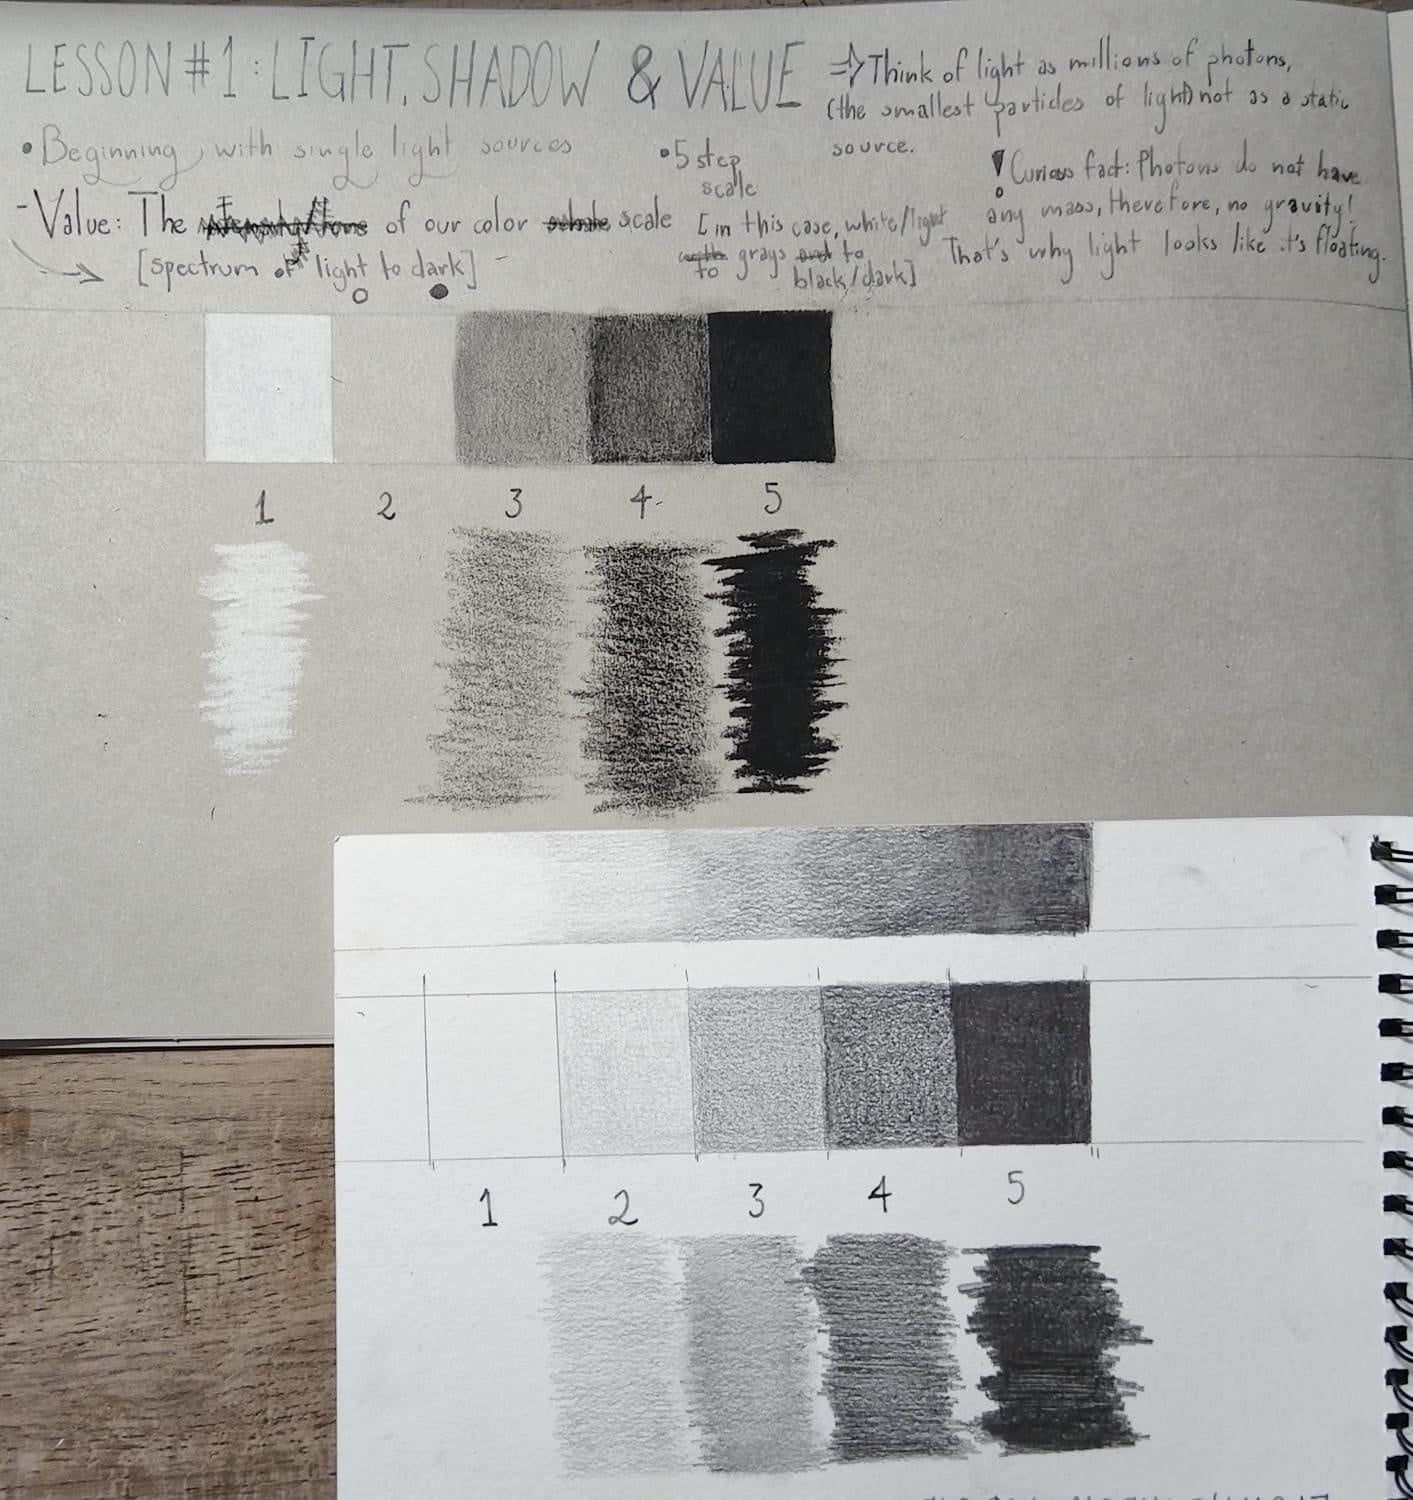 LESSON #1: LIGHT, SHADOW & VALUE
• Beginning, with single light sources
- Value: The of our color scale
[spectrum of light to dark] -
• 5 step
scale
[in this case, white/light
to grays to
black/dark]
=> Think of light as millions of photons,
(the smallest particles of light) not as a static
source.
! Curious fact: Photons do not have
any mass, therefore, no gravity!
That's why light looks like it's floating.
1 2 3 4 5
1 2 3 4 5